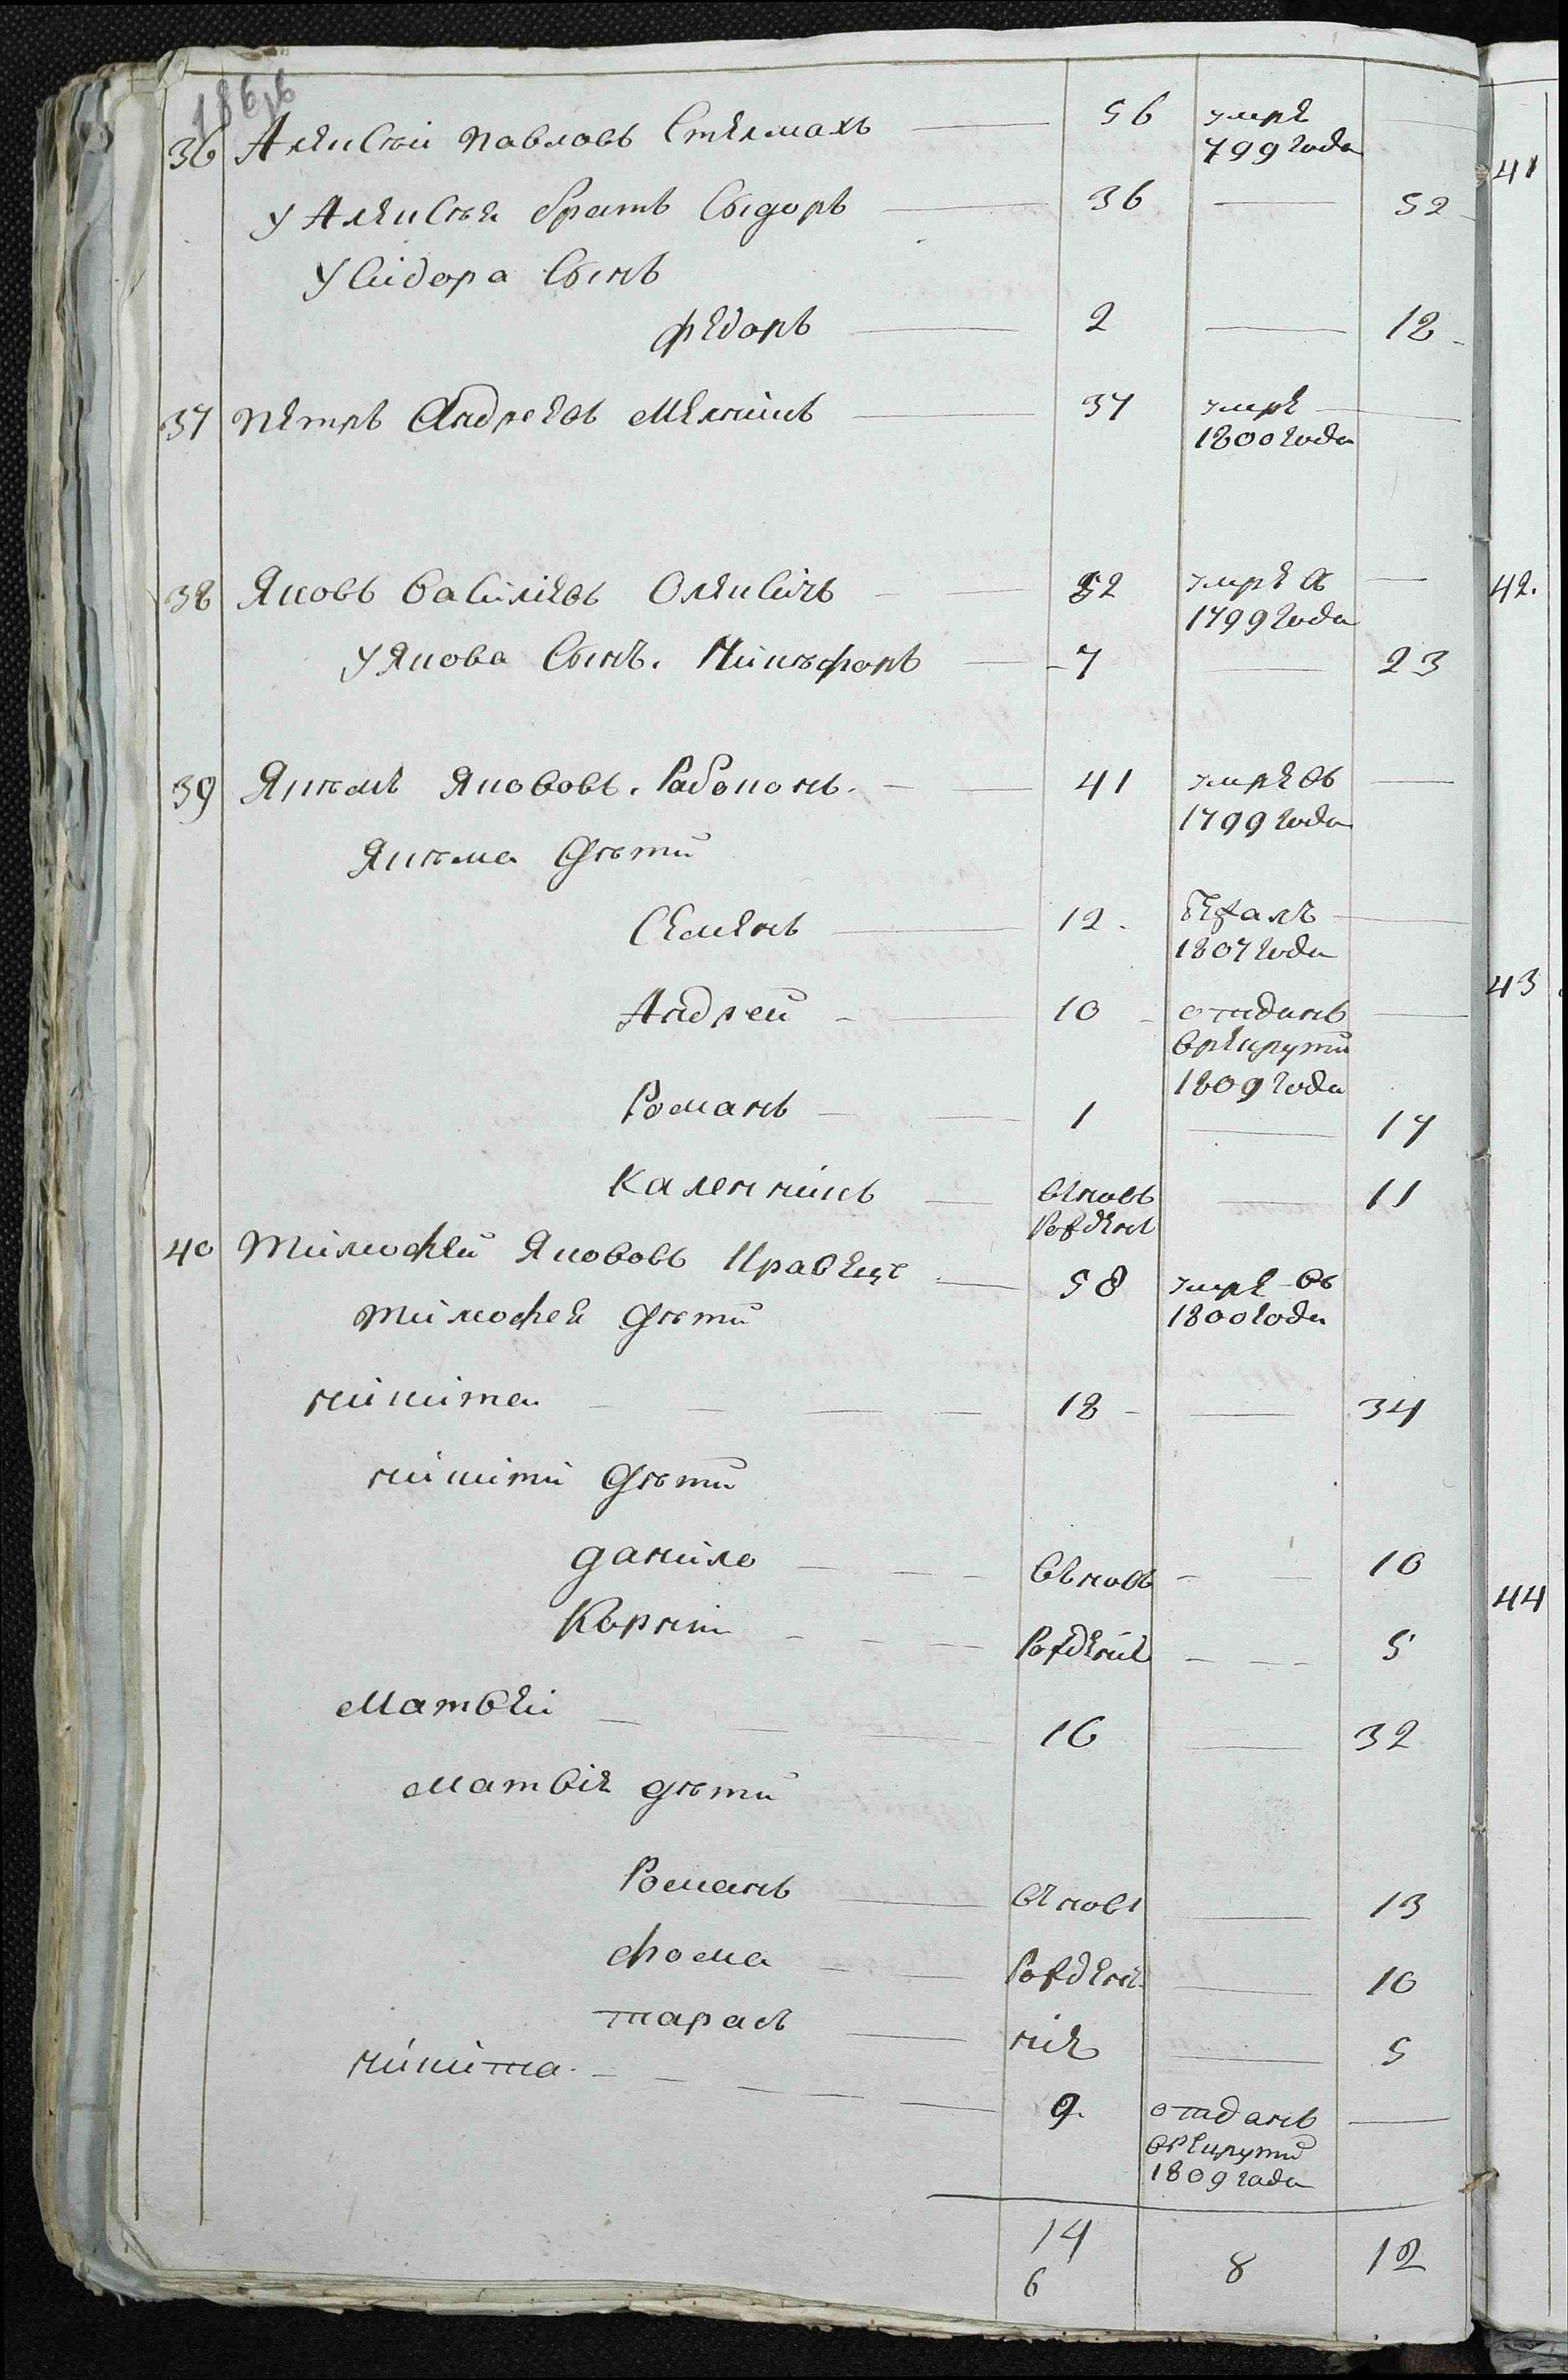 186
36 Алексей Павловъ Стелмахъ 56 умре
799 года
у Алексея братъ Сыдоръ 36 52
у Сидора сынъ
Федоръ 2 18
37 Петръ Андреевъ Мелникъ 37 умре
1800 года
38 Яковъ Василиевъ 52 умре въ
1799 года
у Якова сынъ. Никифоръ 7 23
39 Якимъ Якововъ. 41 умре въ
1799 года
Якима дети
Семенъ 12. бежалъ
1807 года
Андрей 10 отданъ
в рекрути
1809 года
Романъ 1 17
Каленникъ вновь 11
рожденъ
40 Тимофей Якововъ Кравецъ 58 умре въ
1800 года
Тимофея дети
Никита 18 34
Никити дети
Данило вновь 10
Корней рожденние 5
Матвей 16 32
Матвия дети
Романъ вновь 13
Фома рожден 10
Тарасъ ние 5
Никита. 9. отданъ
в рекрути
1809 года
14 8 12
6
41
42.
43
44